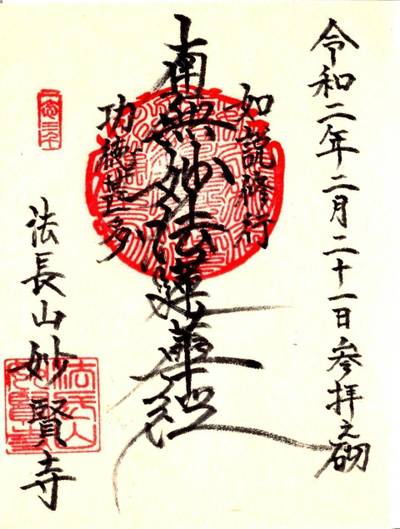 令和二年二月二十一日参拝之砌
如説修行
南無妙法蓮華経
功徳甚多
法長山妙賢寺